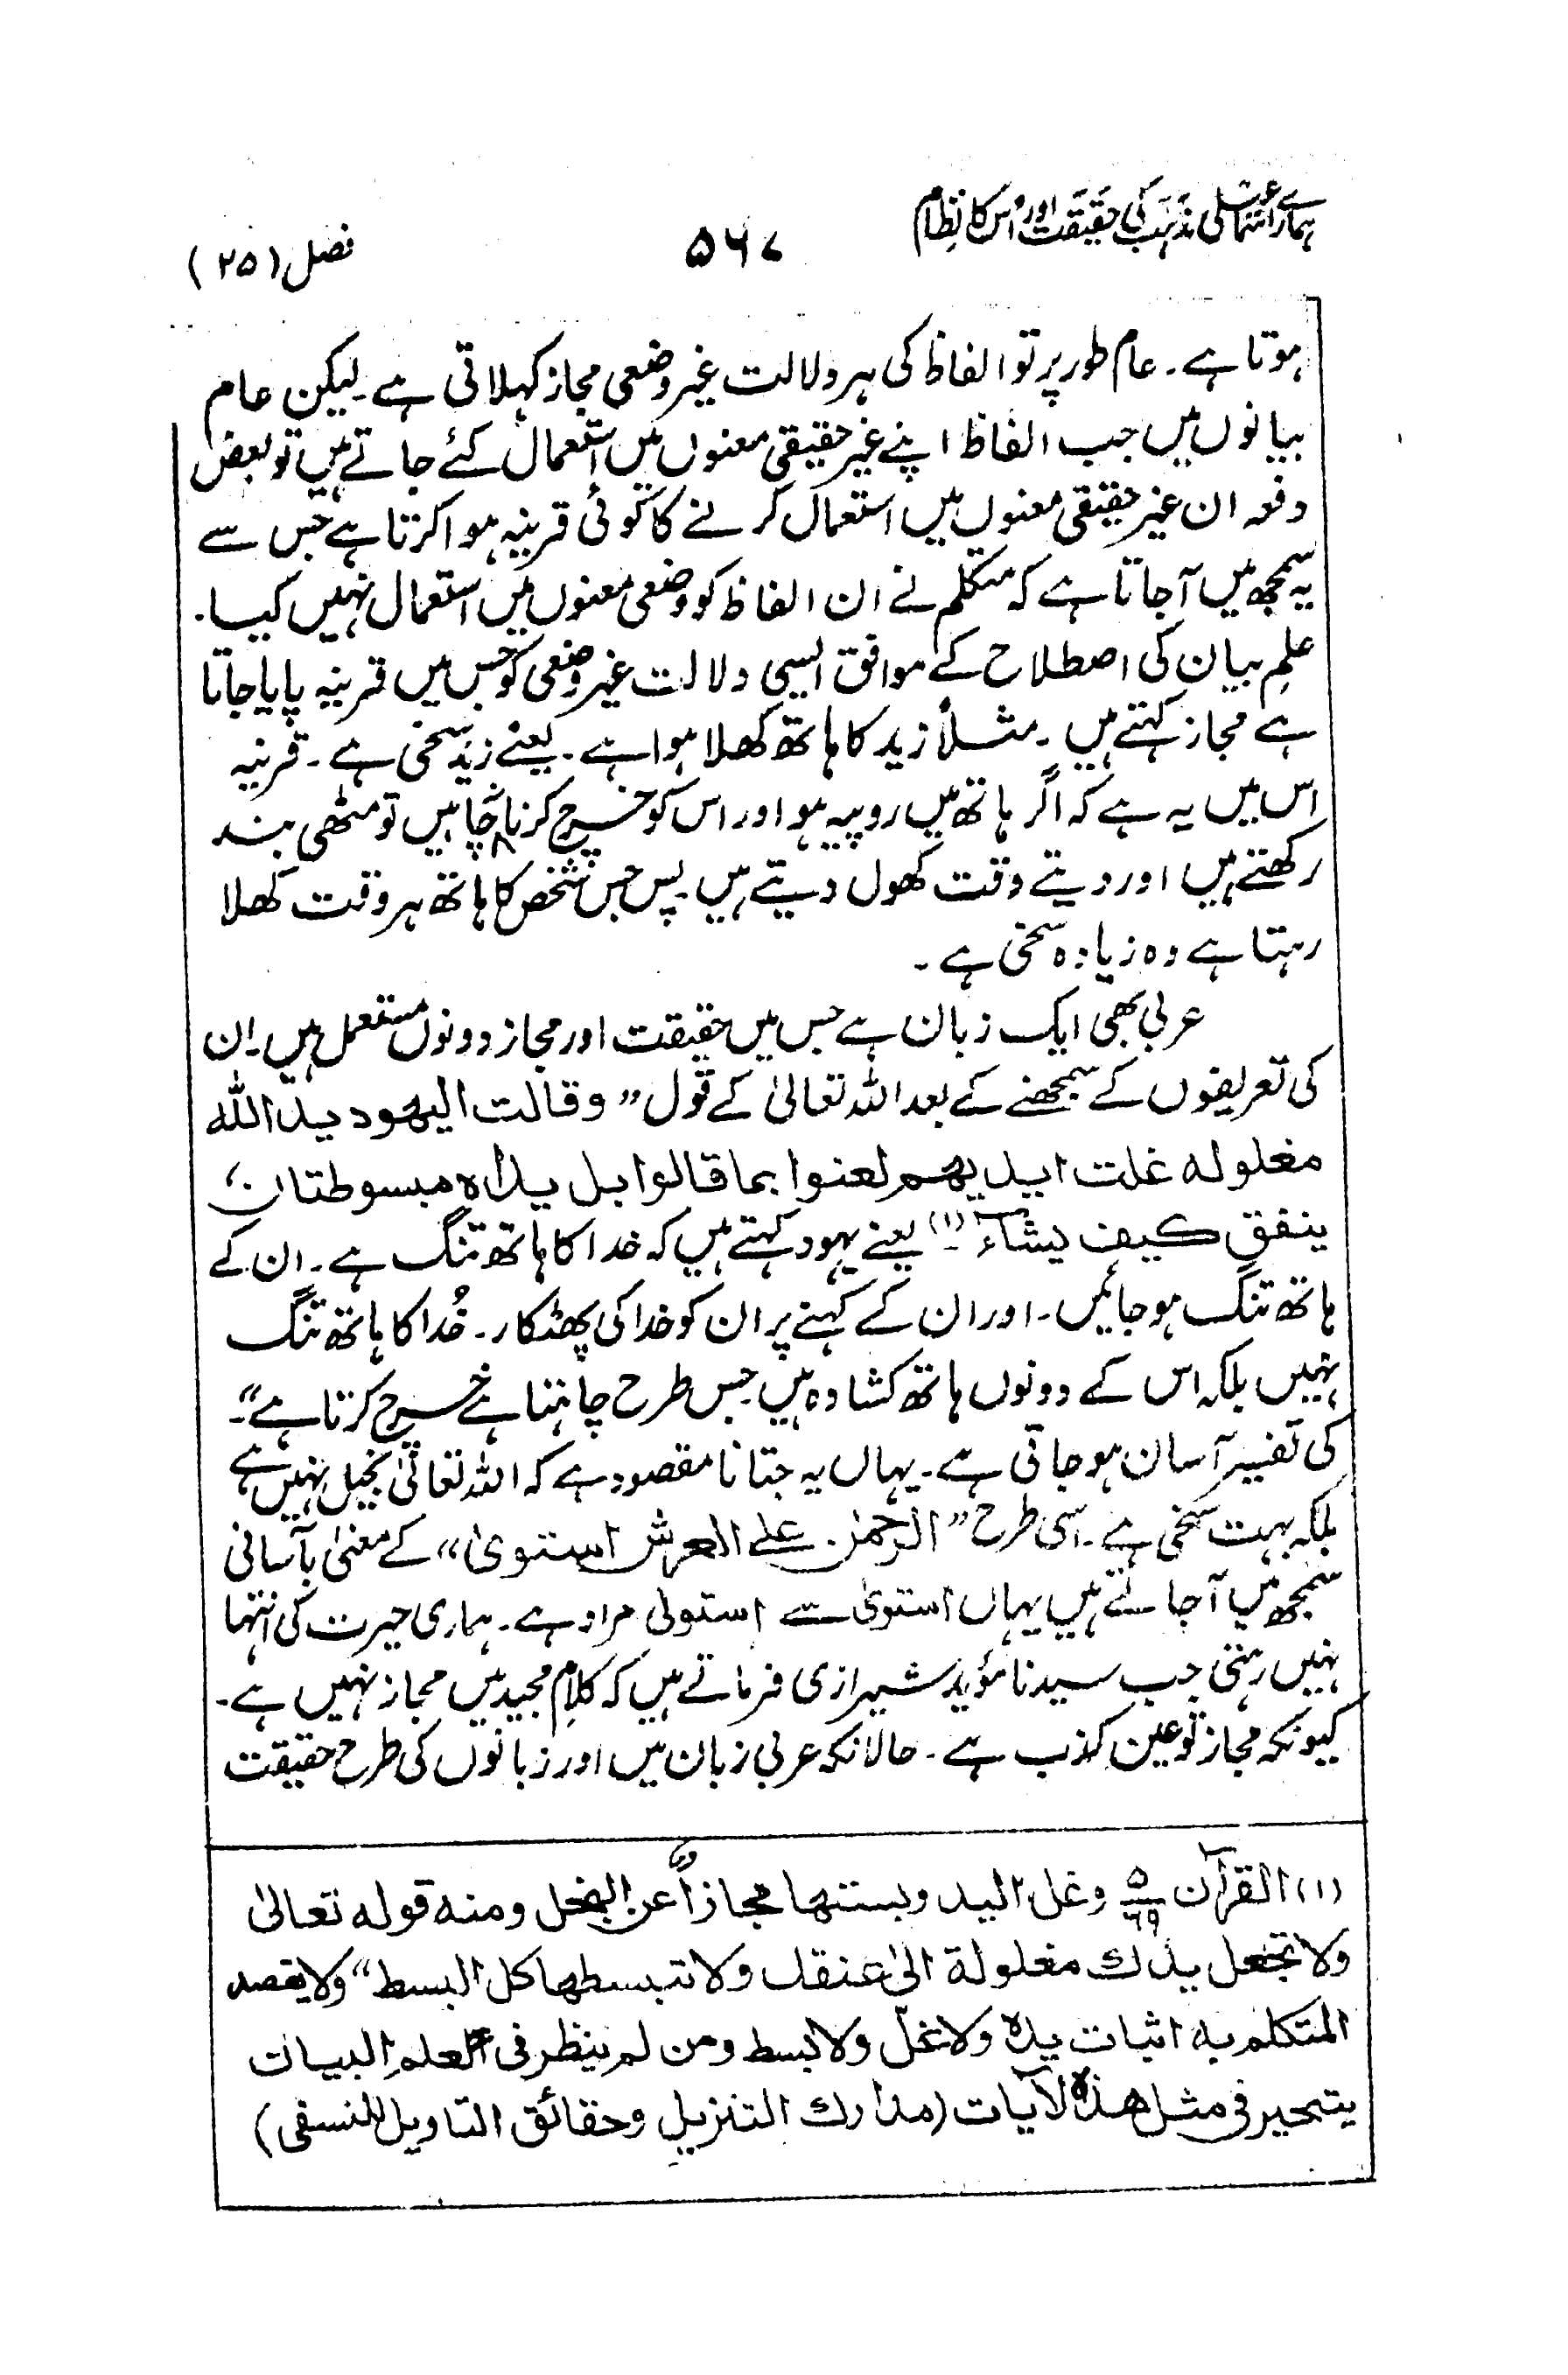 ہمارے اسماعیلی مذہب کی حقیقت اور اس کا نظام
۵۶۷
فصل (۲۵)
ہوتا ہے۔ عام طور پر تو الفاظ کی ہر دلالت غیر وضعی مجاز کہلاتی ہے۔ لیکن عام
بیانوں میں جب الفاظ اپنے غیر حقیقی معنوں میں استعمال کئے جاتے ہیں تو بعض
دفعہ ان غیر حقیقی معنوں میں استعمال کرنے کا کوئی قرینہ ہوا کرتا ہے جس سے
یہ سمجھ میں آجاتا ہے کہ متکلم نے ان الفاظ کو وضعی معنوں میں استعمال نہیں کیا۔
علمِ بیان کی اصطلاح کے موافق ایسی دلالت غیر وضعی کو جس میں قرینہ پایا جاتا
ہے مجاز کہتے ہیں۔ مثلاً زید کا ہاتھ کھلا ہوا ہے۔ یعنے زید سخی ہے۔ قرینہ
اس میں یہ ہے کہ اگر ہاتھ میں روپیہ ہو اور اس کو خرچ کرنا نہ چاہیں تو مٹھی بند
رکھتے ہیں اور دیتے وقت کھول دیتے ہیں۔ پس جس شخص کا ہاتھ ہر وقت کھلا
رہتا ہے وہ زیادہ سخی ہے۔
عربی بھی ایک زبان ہے جس میں حقیقت اور مجاز دونوں مستعمل ہیں۔ ان
کی تعریفوں کے سمجھنے کے بعد اللہ تعالیٰ کے قول ”وقالت الیهود ید الله
مغلوله غلت ایدیهم لعنوا بما قالوا بل یداه مبسوطتان
ینفق کیف یشاء“ (۱) یعنے یہود کہتے ہیں کہ خدا کا ہاتھ تنگ ہے۔ ان کے
ہاتھ تنگ ہوجائیں۔ اور ان کے کہنے پر ان کو خدا کی پھٹکار۔ خُدا کا ہاتھ تنگ
نہیں بلکہ اس کے دونوں ہاتھ کشادہ ہیں۔ جس طرح چاہتا ہے خرچ کرتا ہے“۔
کی تفسیر آسان ہوجاتی ہے۔ یہاں یہ جتانا مقصود ہے کہ اللہ تعالیٰ بخیل نہیں ہے
بلکہ بہت سخی ہے۔ اسی طرح ”الرحمٰن علی العرش استویٰ“ کے معنیٰ بآسانی
سمجھ میں آجاتے ہیں یہاں استویٰ سے استولی مراد ہے۔ ہماری حیرت کی انتہا
نہیں رہتی جب سیدنا مؤید شیرازی فرماتے ہیں کہ کلامِ مجید میں مجاز نہیں ہے۔
کیونکہ مجاز تو عین کذب ہے۔ حالانکہ عربی زبان میں اور زبانوں کی طرح حقیقت
(۱) القرآن ۵/۶۹ وغل الید وبستها مجازاً عن البخل ومنه قوله تعالیٰ
ولا تجعل یدك مغلولة الیٰ عنقك ولا تبسطها كل البسط“ ولا یقصد
المتکلم به اثبات یده ولا غلّ ولا بسط ومن لم ینظر فی العلم البیان
یتحیر فی مثل هذه الآیات (مدارك التنزیل وحقائق التاویل للنسفی)